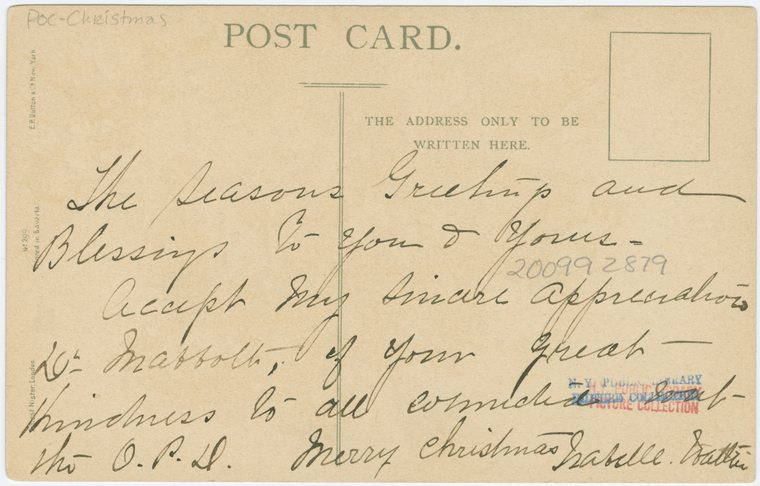 PoC-Christmas
POST CARD.
THE ADDRESS ONLY TO BE
WRITTEN HERE.
The Seasons Greetings and
Blessings to You & Yours-
200992879
Accept My Sincere Appreciation
Dr Mabbott, of Your Great
Kindness to all connected
N. Y. PUBLIC LIBRARY
PICTURE COLLECTION
the O.P.D. Merry Christmas Isabelle.
E.P. Dutton & Co New York
Ernest Nister London